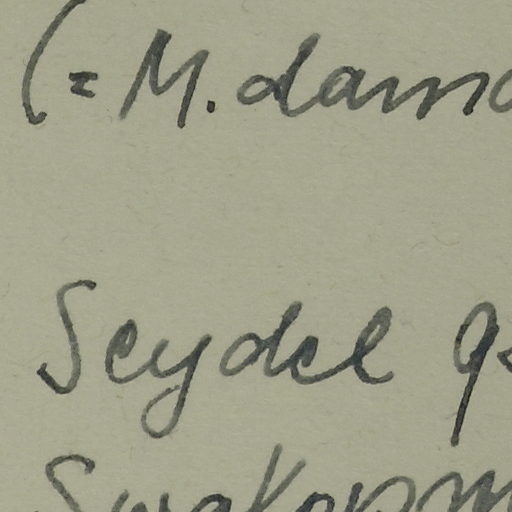 (= M. dam
Seydel
Swakopm